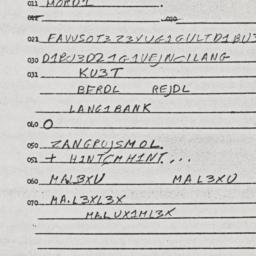 011 MORD1L
021 FAVUSOT3 Z3YUG1GULTD1BU3
030 D1PU3DZ1G1UEJNC1LANG
031 KU3T
BFRDL REJDL
LANG1BANK
040 O
050 ZANGPUJSMOL.
051 + H1NTCMH1NT...
060 MAL3XU MAL3XU
070 MA.L3XL3X
MALUX1ML3X